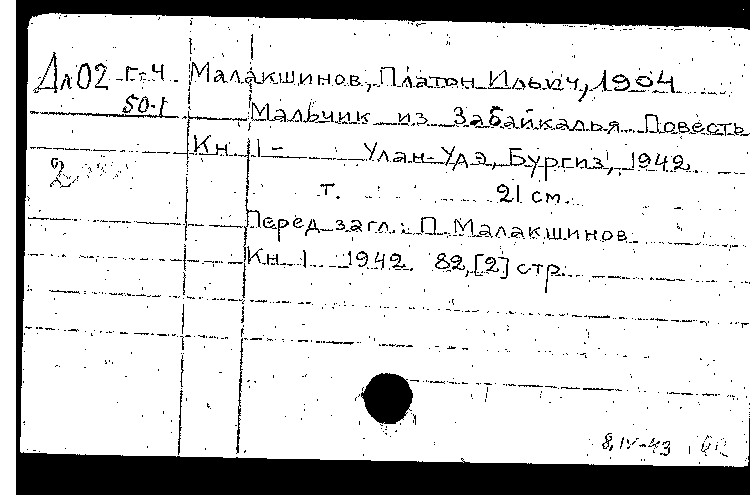 Дл02 Г-4 Малакшинов, Платон Ильич, 1904
50-1 Мальчик из Забайкалья Повесть
Кн. 1- Улан-Удэ, Бургиз, 1942.
2
т. 21 см.
Перед загл.: П. Малакшинов
Кн 1 1942. 82,[2] стр.
8.IV-43